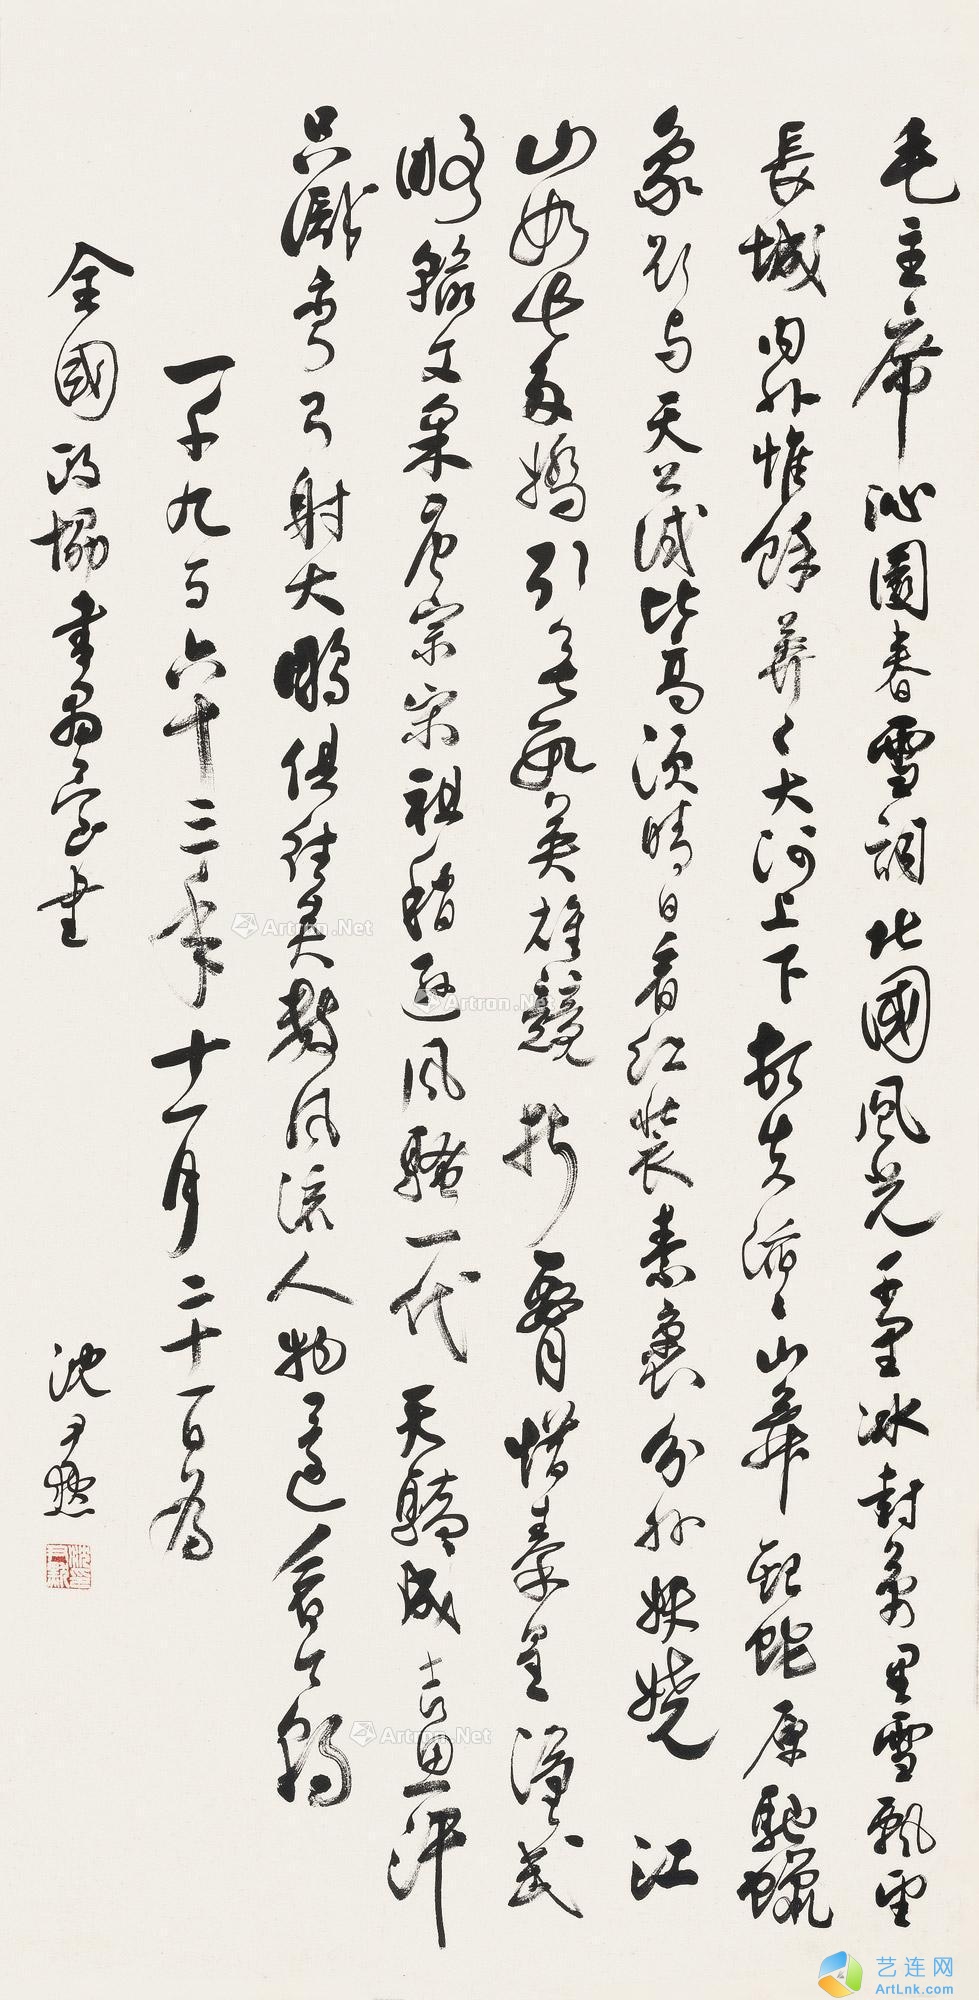 毛主席沁園春雪詞北國風光千里冰封萬里雪飄望
長城內外惟餘莽々大河上下頓失滔々山舞銀蛇原馳蠟
象欲与天公試比高須晴日看红裝素裹分外妖嬈 江
山如此多嬌引無數英雄競折腰惜秦皇漢武
略輸文采唐宗宋祖稍遜風騷一代天驕成吉思汗
只識彎弓射大鵰俱往矣數風流人物還看今朝
一千九百六十三年十一月二十一日為
全國政協書畫室書
沈尹默
沈尹默
Artron.Net
Artron.Net
Artron.Net
艺连网
ArtLnk.com